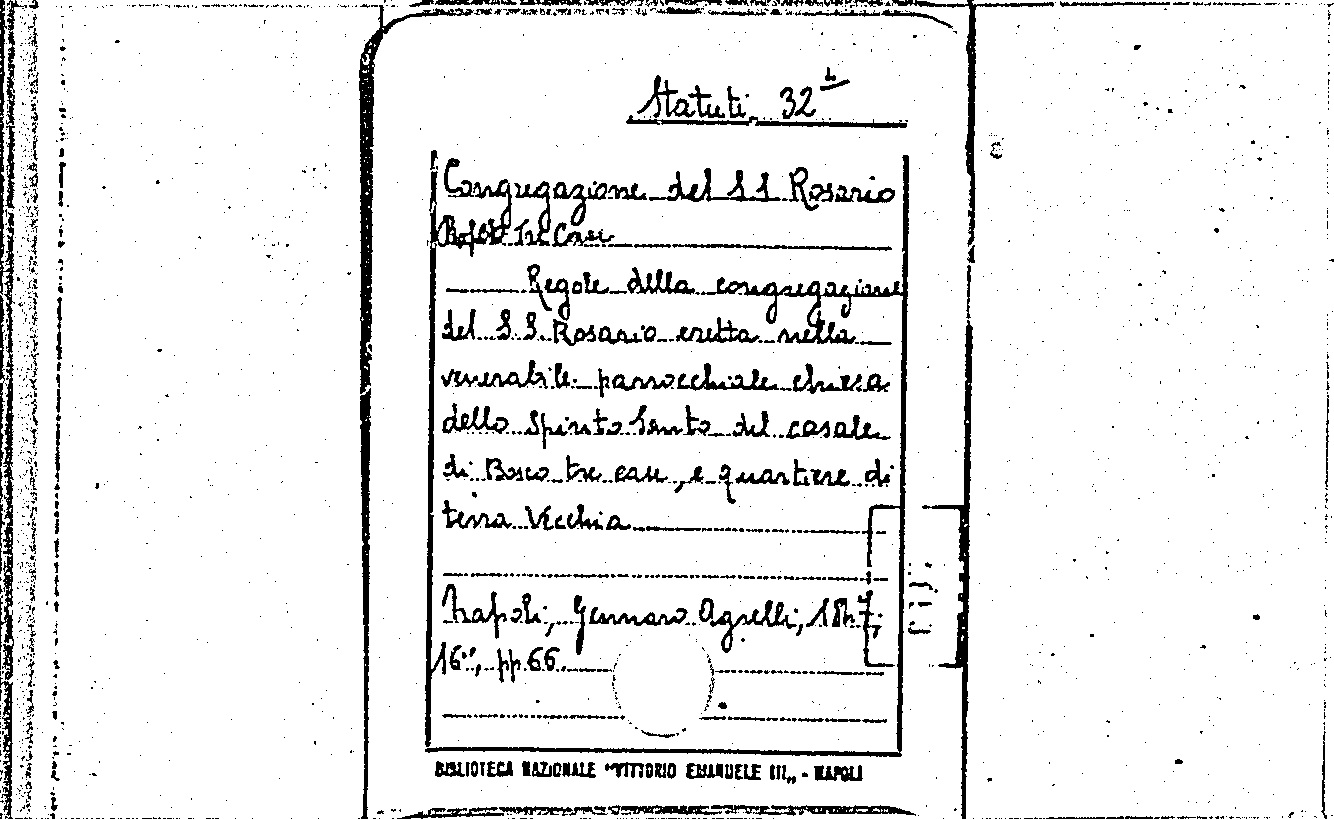 Statuti. 32
Congregazione del SS Rosario
Tre Case
Regole della congregazione
del S.S. Rosario eretta nella
venerabile parrocchiale chiesa
dello Spirito Santo del casale
di Bosco tre case, e quartiere di
terra Vecchia
Napoli, Gennaro Agrelli,
16°, pp. 66.
BIBLIOTECA NAZIONALE "VITTORIO EMANUELE III„ - NAPOLI